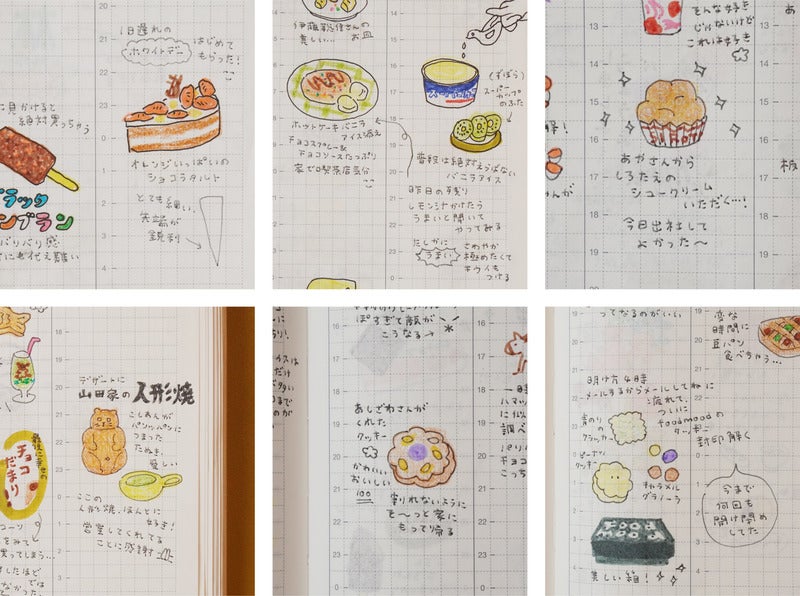 1日遅れの
ホワイトデー
はじめて
もらった!
に見かけると
絶対買っちゃう
オレンジいっぱいの
ショコラタルト
とても細い、
先端が
鋭利
ブラック
ンブラン
バリバリ感
20
21
22
23
0
1
2
3
4
伊藤
さんの
美しい… お皿
ホットケーキバニラ
アイス添え
チョコスプレー&
チョコソースたっぷり
家で喫茶店気分
(ずぼら)
スーパー
カップの
ふた
普段は絶対えらばない
バニラアイス
昨日の残り
レモン汁かけたら
うまいと聞いて
やってみる
たしかに
うまい
さわやか
極めたくて
キウイも
つける
そんな好き
じゃないけど
これは好き
あやさんから
しろたえの
シュークリーム
いただく…!
今日出社して
よかった〜
デザートに
山田家の人形焼
こしあんが
パンパンに
つまった
たぬき。
愛しい
ここの
人形焼、ほんとに
好き!
営業してくれてる
ことに感謝
チョコ
だまり
ぽすぎて顔が
こうなる→
あしざわさんが
くれた
クッキー
かわいい
おいしい
100
割れないように
そ〜っと家に
もって帰る
ってなるのがいい
変な
時間に
豆パン
食べちゃう…
明け方4時
メールするからメールしてねに
疲れて、
ついに
foodmoodの
クッキー
封印解く
青のりの
クラッカー
ピーナッツ
クッキー
キャラメル
グラノーラ
今まで
何回も
開け閉め
してた
美しい箱!